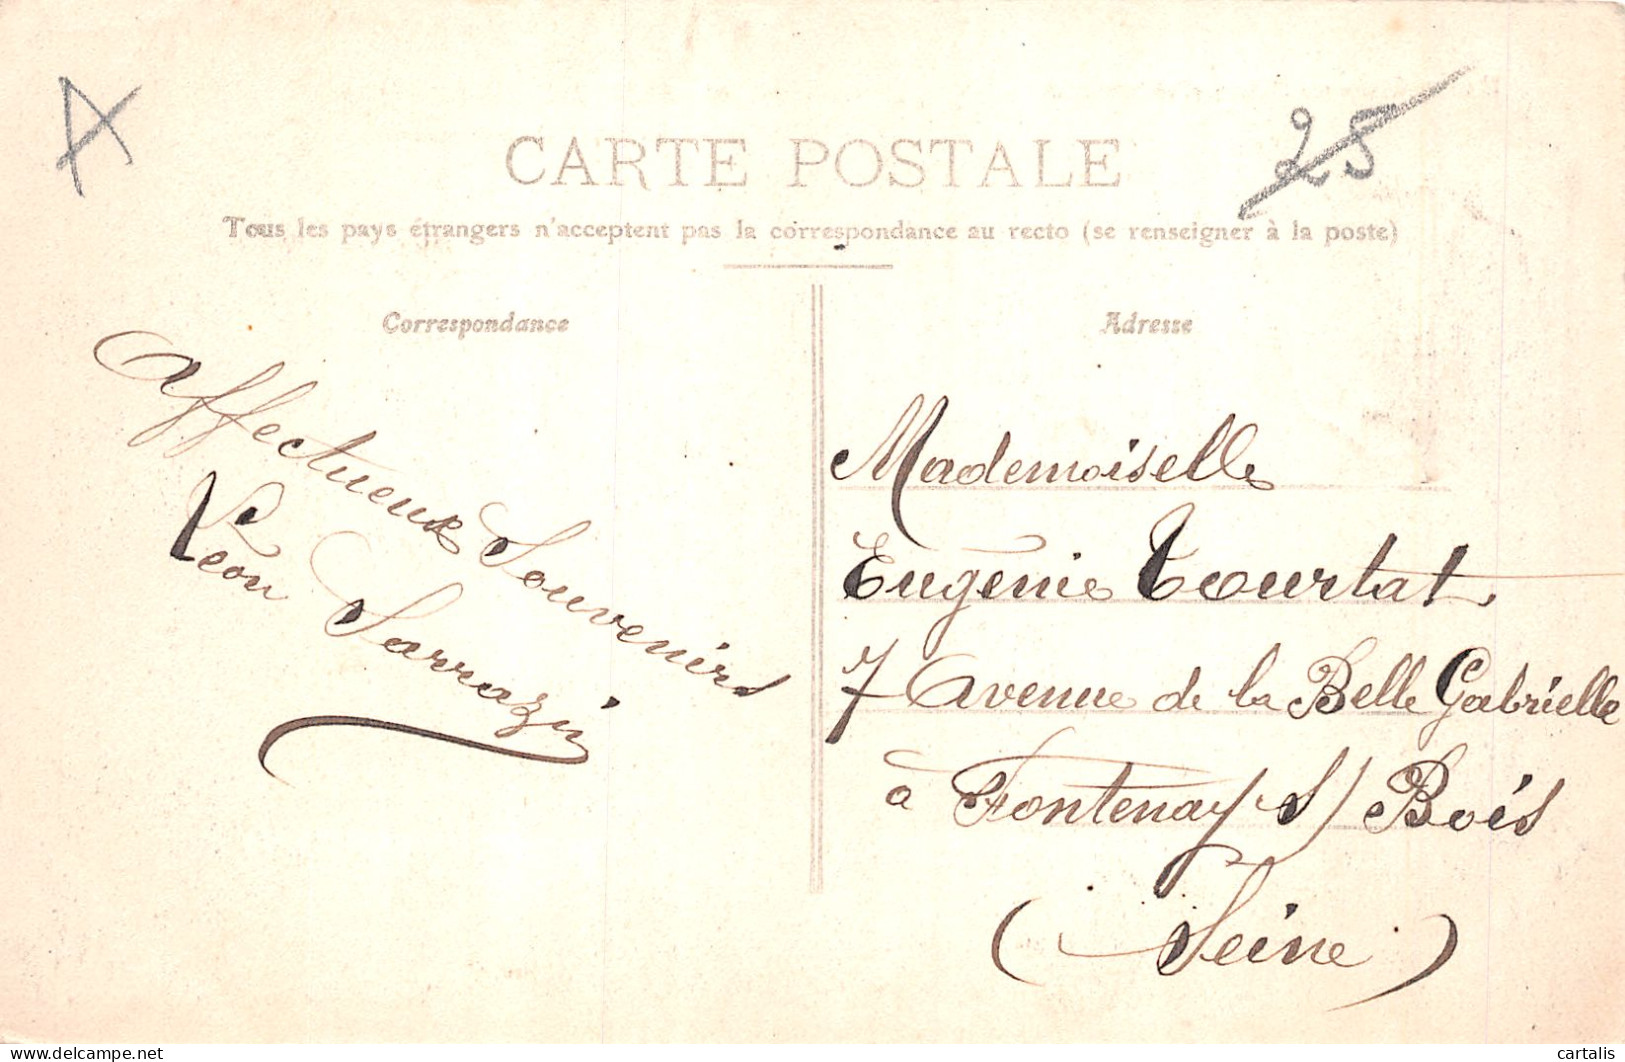 25
CARTE POSTALE
Tous les pays étrangers n'acceptent pas la correspondance au recto (se renseigner à la poste)
Correspondance
Affectueux Souvenirs
Léon Sarrazin
Adresse
Mademoiselle
Eugénie Tourtat
7 Avenue de la Belle Gabrielle
à Fontenay s/ Bois
(Seine)
delcampe.net
cartalis